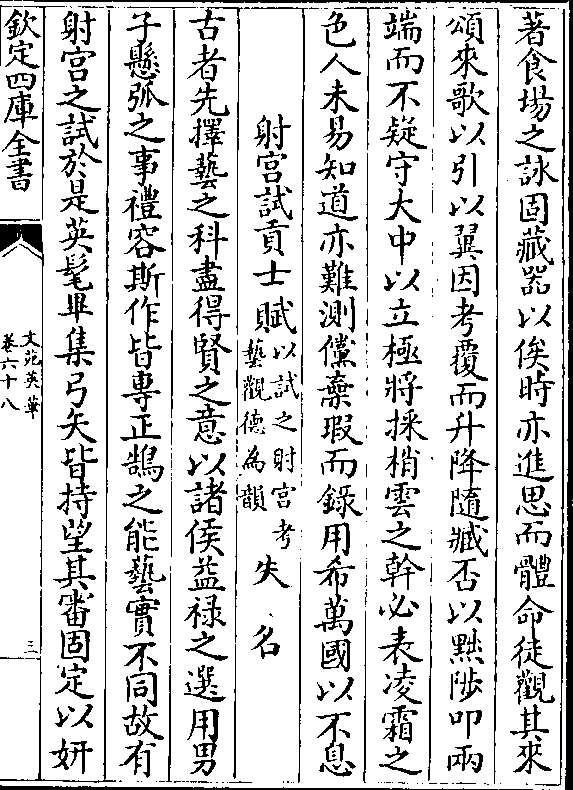 著食場之詠固藏器以俟時亦進思而體命徒觀其來
頌來歌以引以翼因考覆而升降隨臧否以黜陟叩兩
端而不疑守大中以立極將採梢雲之幹必表凌霜之
色人未易知道亦難測儻棄瑕而錄用希萬國以不息
射宮試貢士賦以試之射宮考藝觀德為韻 失名
古者先擇藝之科盡得賢之意以諸侯益祿之選用男
子懸弧之事禮容斯作皆專正鵠之能藝實不同故有
射宮之試於是英髦畢集弓矢皆持望其審固定以妍
欽定四庫全書
文苑英華
卷六十八
三